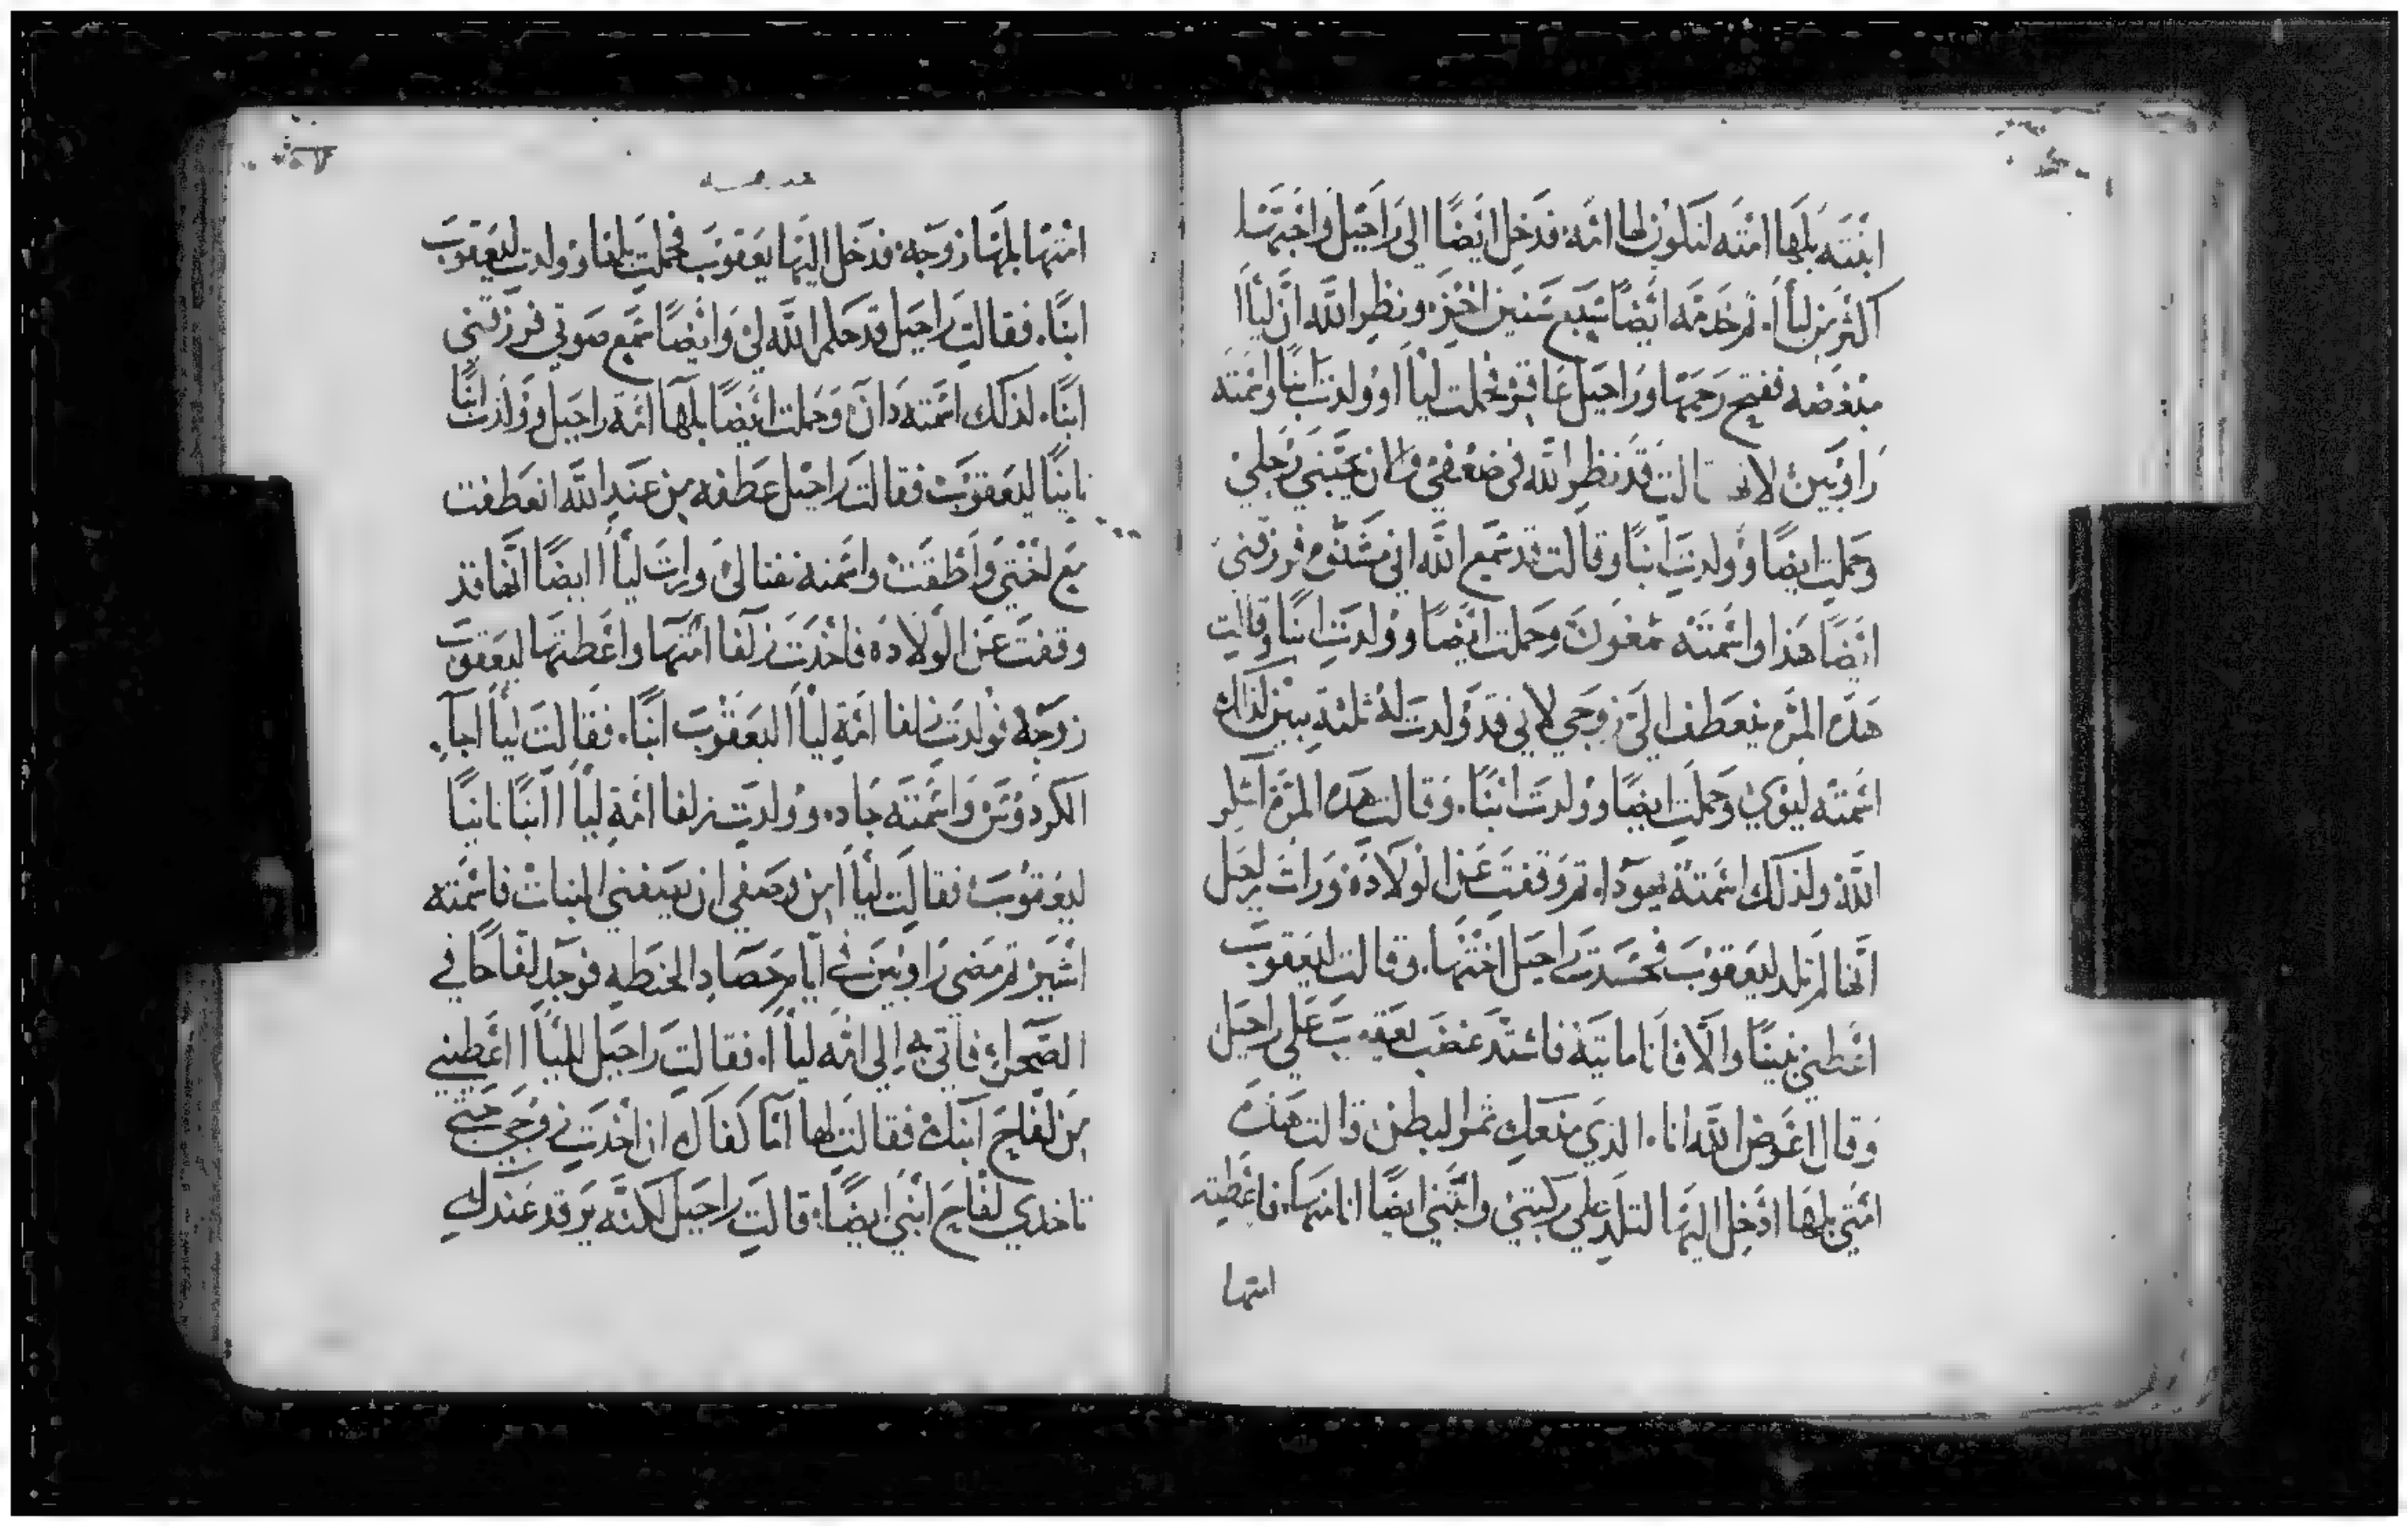 ابنته بلها امته لتكون لها امه فدخل ايضا الى راحيل واحبها
اكثر من ليأا. ثم خدمه ايضا سبع سنين اخر. ونظر الله ان ليأا
مبغضه ففتح رحمها وراحيل عاقر فحملت ليأا وولدت ابنا واسمته
راوبين لانها قالت قد نظر الله في ضعفي والان يحبني رجلي
وحملت ايضا وولدت ابنا وقالت قد سمع الله اني مشنوه فرزقني
ايضا هذا واسمته شمعون وحملت ايضا وولدت ابنا وقالت
هذه المره ينعطف الي زوجي لاني قد ولدت له ثلثة بنين لذلك
اسمته ليوي وحملت ايضا وولدت ابنا. وقالت هذه المره اشكر
الله ولذلك اسمته يهودا. ثم وقفت عن الولاده ورات راحيل
انها لم تلد ليعقوب فحسدت راحيل اختها. وقالت ليعقوب
اعطني بنينا والا فانا مايته فاشتد غضب يعقوب على راحيل
وقال اعوض الله انا. الذي منعك ثمر البطن قالت هذه
امتي بلها ادخل اليها لتلد على ركبتي وابتني ايضا انا منها. فاعطته
امتها
امتها بلها زوجه فدخل اليها يعقوب فحملت بلها وولدت ليعقوب
ابنا. فقالت راحيل قد حكم الله لي وايضا سمع صوتي فرزقني
ابنا. لذلك اسمته دان وحملت ايضا بلها امة راحيل وولدت ابنا
ثانيا ليعقوب فقالت راحيل عطفه من عند الله انعطفت
مع اختي واطقت واسمته نفتالي ورات ليأا ايضا انها قد
وقفت عن الولاده فاخذت زلفا امتها واعطتها ليعقوب
زوجه فولدت زلفا امة ليأا ليعقوب ابنا. فقالت ليأا جا
الكردوس واسمته جاد. وولدت زلفا امة ليأا ابنا ثانيا
ليعقوب فقالت ليأا من وصفي ان يصفني البنات فاسمته
اشير ثم مضى راوبين في ايام حصاد الحنطه فوجد لفاحا في
الصحرا فاتى به الى امه ليأا. فقالت راحيل لليأا اعطيني
من لفاح ابنك فقالت لها اما كفاك ان اخذت زوجي حتى
تاخذي لفاح ابني ايضا. قالت راحيل لكنه يرقد عندك